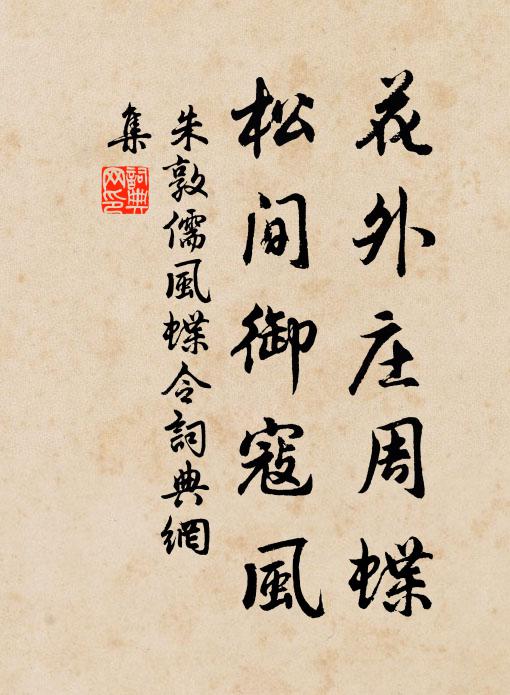 花外庄周蝶
松间御寇風
朱敦儒風蝶令詞典網
集
詞典网印